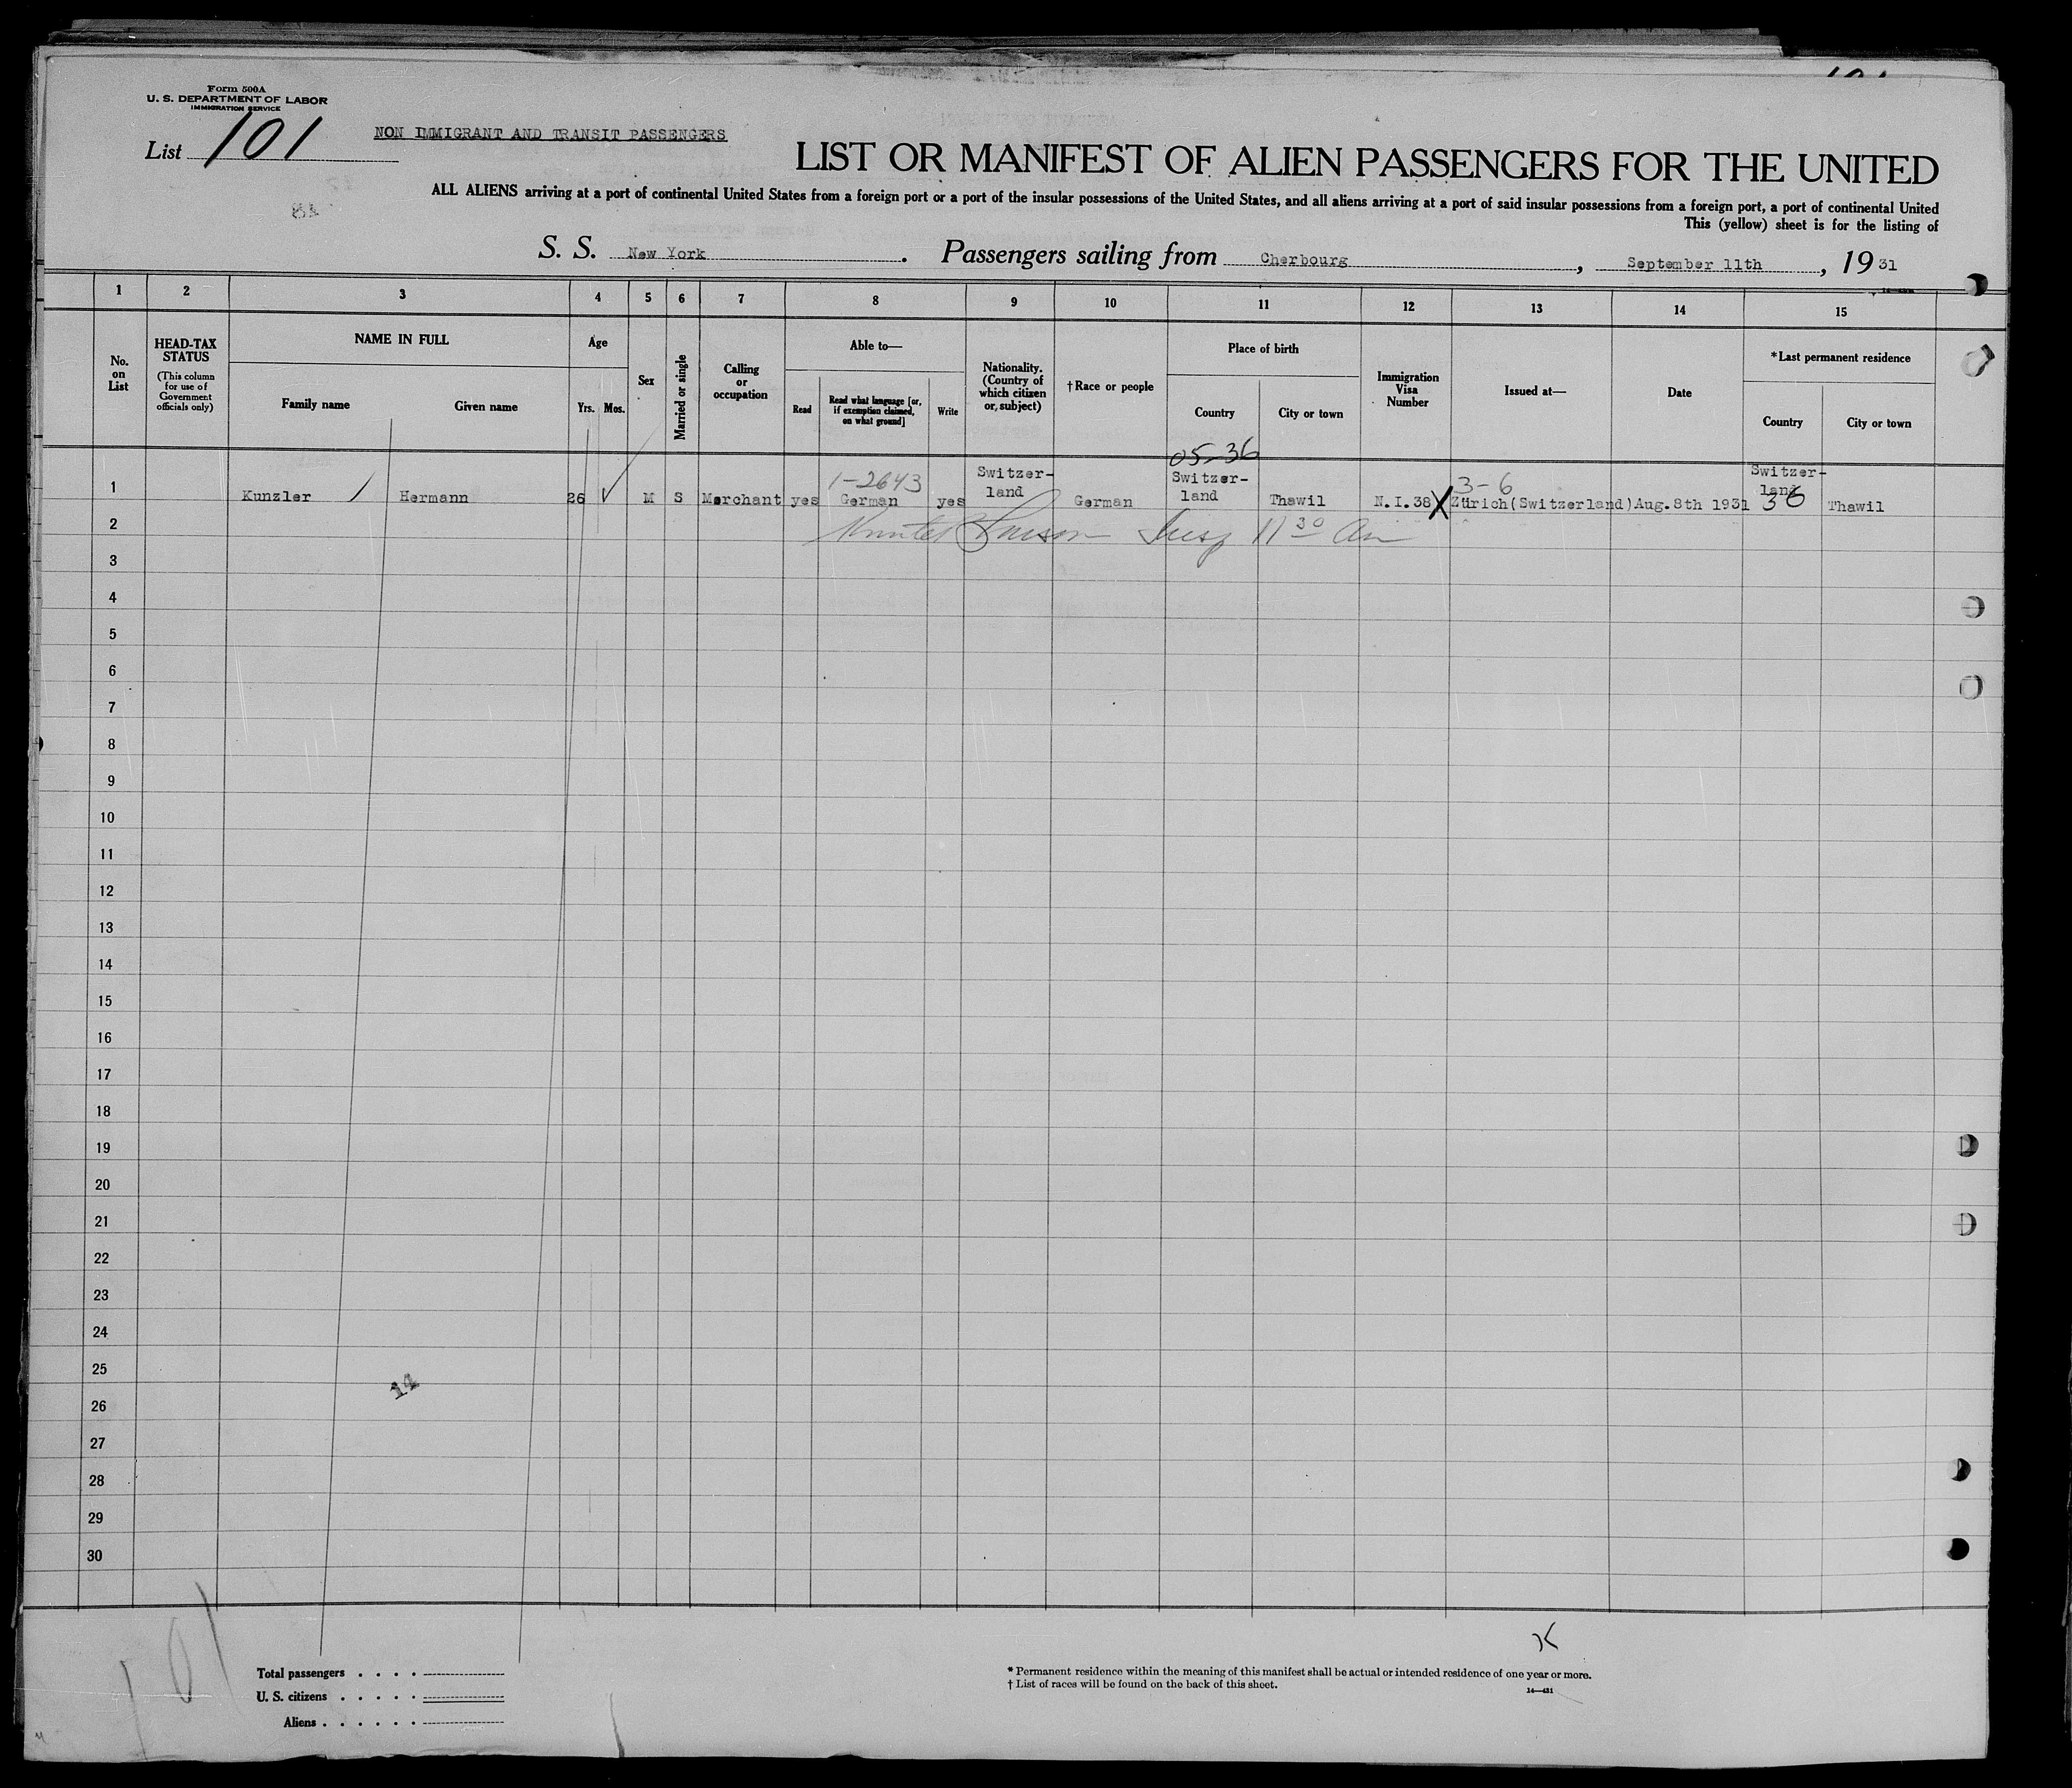 Form 500A
U. S. DEPARTMENT OF LABOR
IMMIGRATION SERVICE
List 101
NON IMMIGRANT AND TRANSIT PASSENGERS
LIST OR MANIFEST OF ALIEN PASSENGERS FOR THE UNITED
ALL ALIENS arriving at a port of continental United States from a foreign port or a port of the insular possessions of the United States, and all aliens arriving at a port of said insular possessions from a foreign port, a port of continental United
This (yellow) sheet is for the listing of
S. S. New York. Passengers sailing from Cherbourg, September 11th, 1931
1 2 3 4 5 6 7 8 9 10 11 12 13 14 15
No. on List
HEAD-TAX STATUS
(This column for use of Government officials only)
NAME IN FULL
Family name
Given name
Age
Yrs. Mos.
Sex
Married or single
Calling or occupation
Able to—
Read
Read what language [or, if exemption claimed, on what ground]
Write
Nationality. (Country of which citizen or, subject)
†Race or people
Place of birth
Country
City or town
Immigration Visa Number
Issued at—
Date
*Last permanent residence
Country
City or town
05-36
1-2643
3-6
1 Kunzler / Hermann 26 ✓ M S Merchant yes German yes Switzer-land German Switzer-land Thawil N.I.38 X Zürich(Switzerland) Aug.8th 1931 Switzer-land 36 Thawil
2 Insp 11 30 Am
3
4
5
6
7
8
9
10
11
12
13
14
15
16
17
18
19
20
21
22
23
24
25
14
26
27
28
29
30
101
Total passengers . . . .
U. S. citizens . . . . .
Aliens . . . . . .
* Permanent residence within the meaning of this manifest shall be actual or intended residence of one year or more.
† List of races will be found on the back of this sheet.
14—431